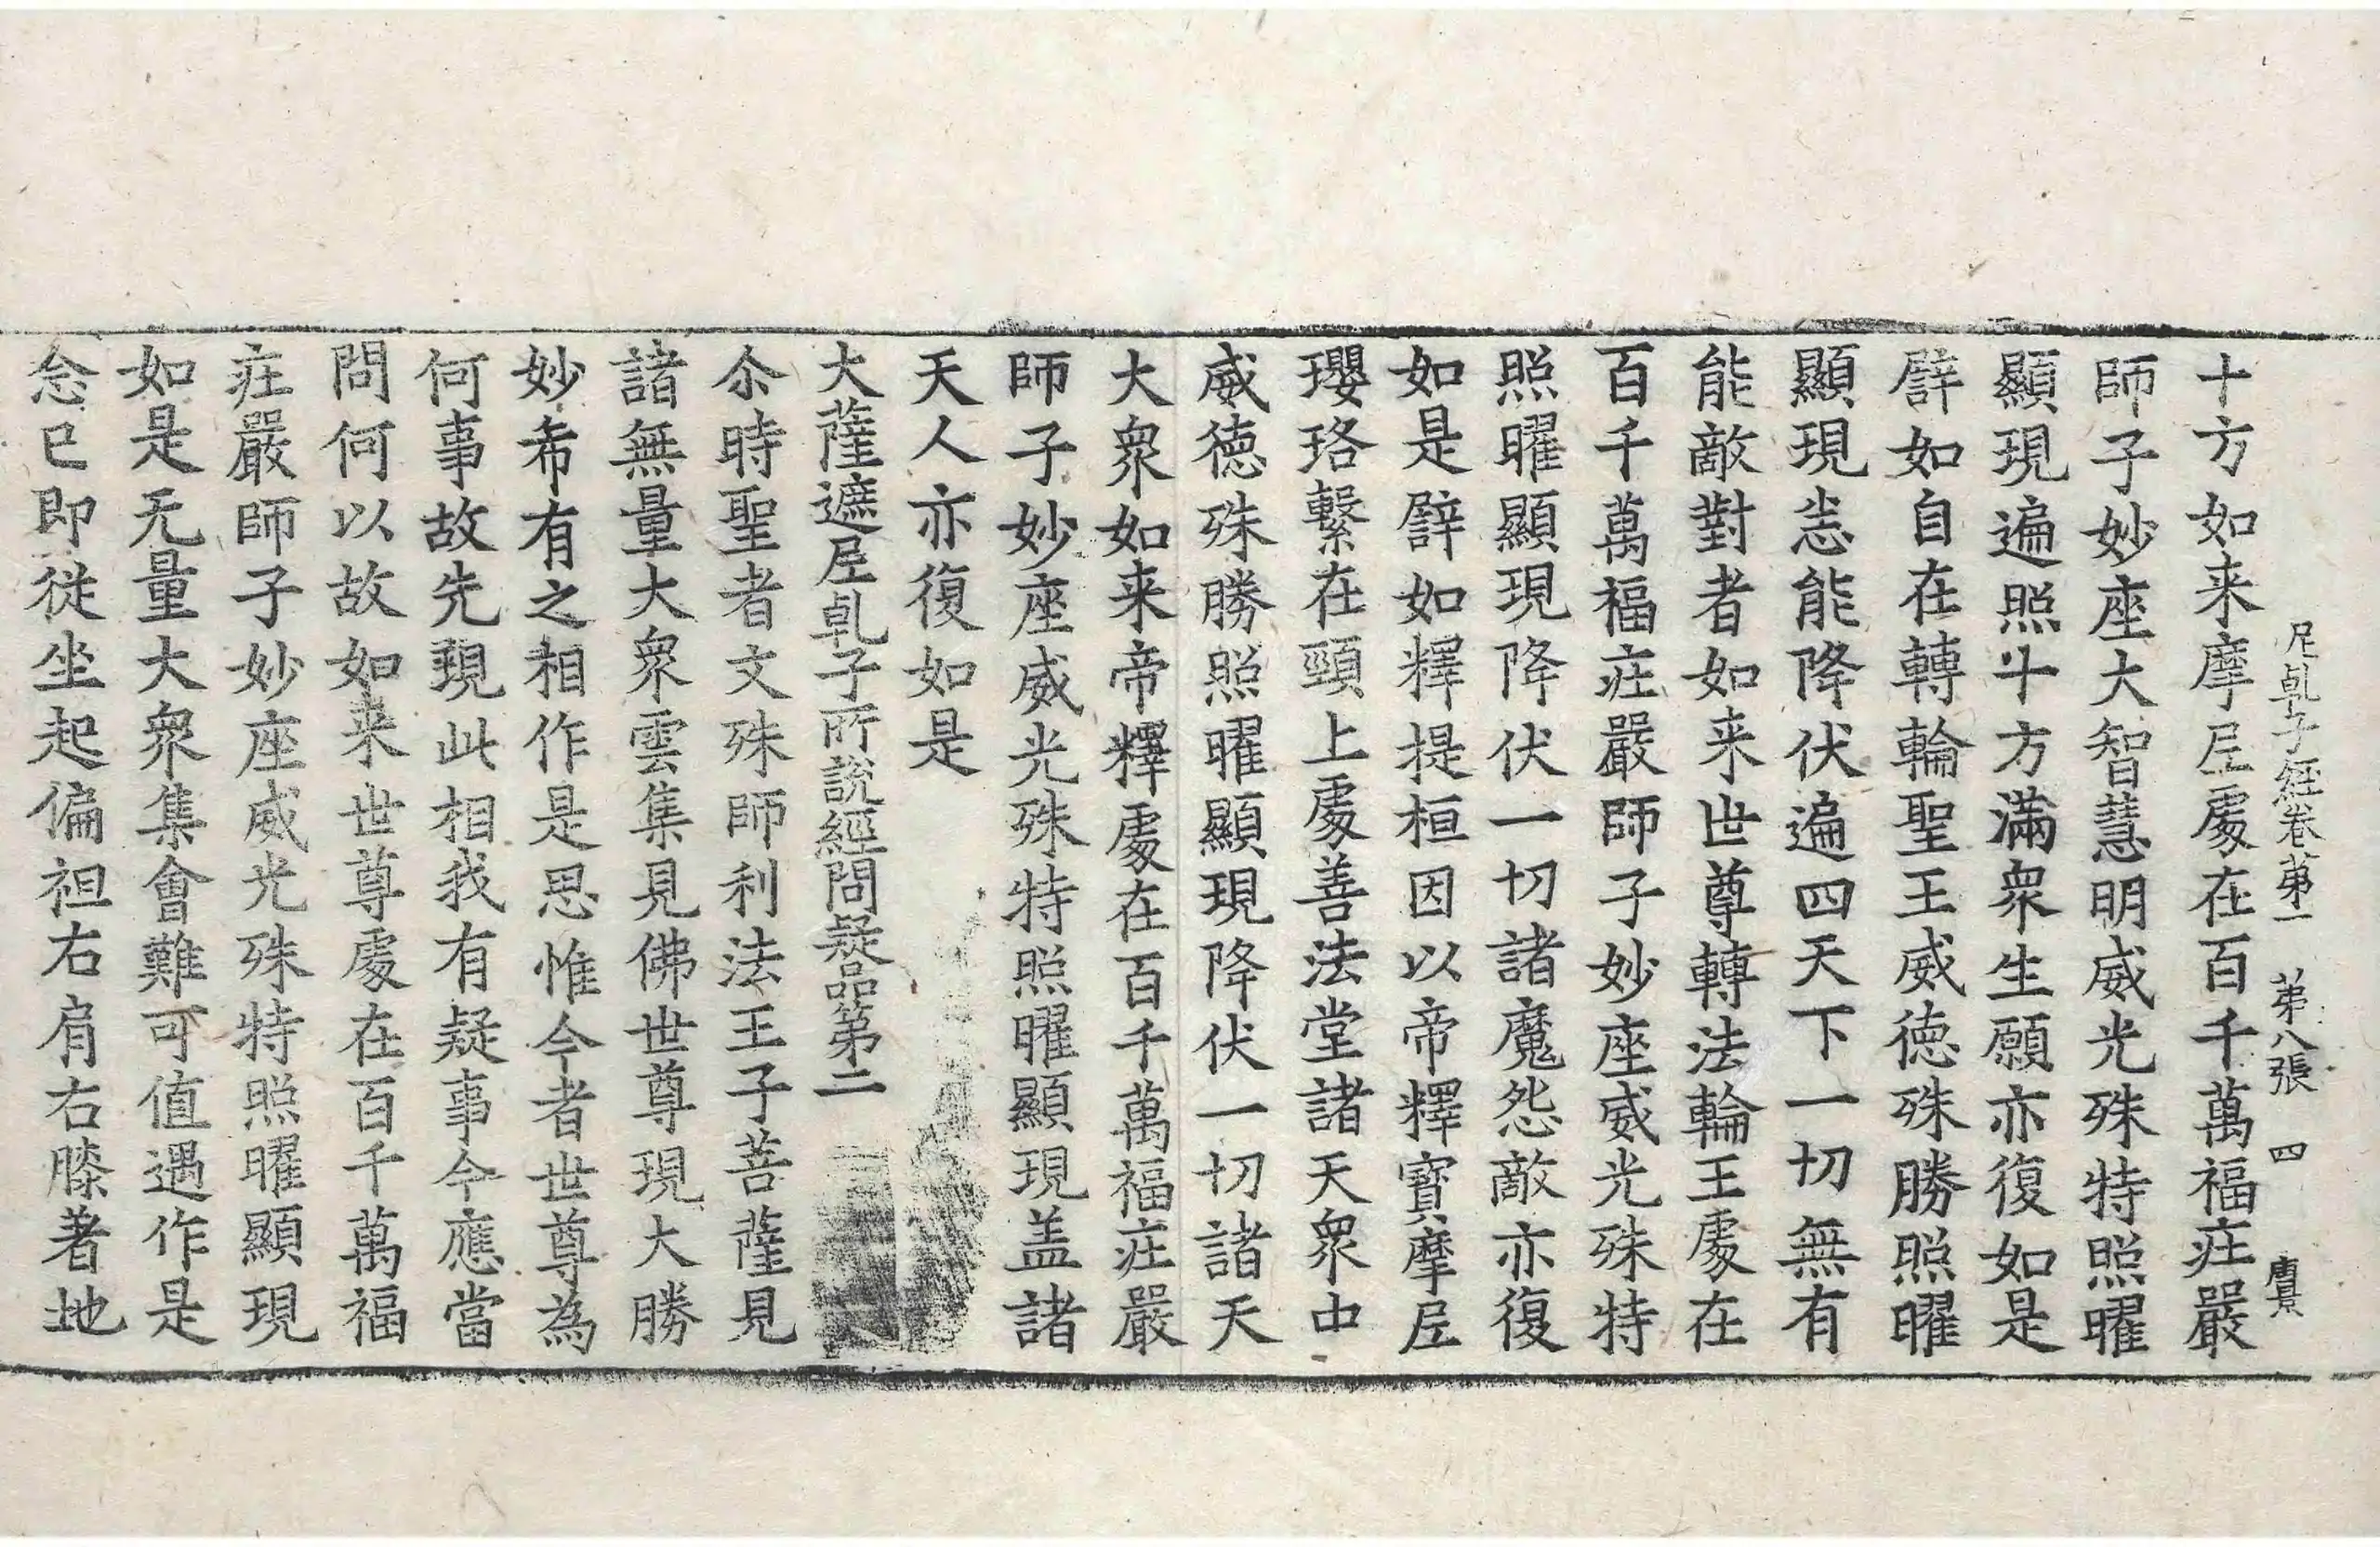 尼乹子經卷第一　第八張　四
十方如来摩𡰱處在百千萬福庄嚴
師子妙座大智慧明威光殊特照曜
顯現遍照十方滿衆生願亦復如是
譬如自在轉輪聖王威徳殊勝照曜
顯現㤀能降伏遍四天下一切無有
能敵對者如来世尊轉法輪王處在
百千萬福庄嚴師子妙座威光殊特
照曜顯現降伏一切諸魔怨敵亦復
如是譬如釋提桓因以帝釋寶摩𡰱
瓔珞繫在頸上處善法堂諸天衆中
威徳殊勝照曜顯現降伏一切諸天
大衆如来帝釋處在百千萬福庄嚴
師子妙座威光殊特照曜顯現盖諸
天人亦復如是
大薩遮𡰱乹子所說經問疑品第二
尒時聖者文殊師利法王子菩薩見
諸無量大衆雲集見佛世尊現大勝
妙希有之相作是思惟今者世尊為
何事故先現此相我有疑事今應當
問何以故如来世尊處在百千萬福
庄嚴師子妙座威光殊特照曜顯現
如是无量大衆集會難可值遇作是
念已即從坐起偏袒右肩右膝著地